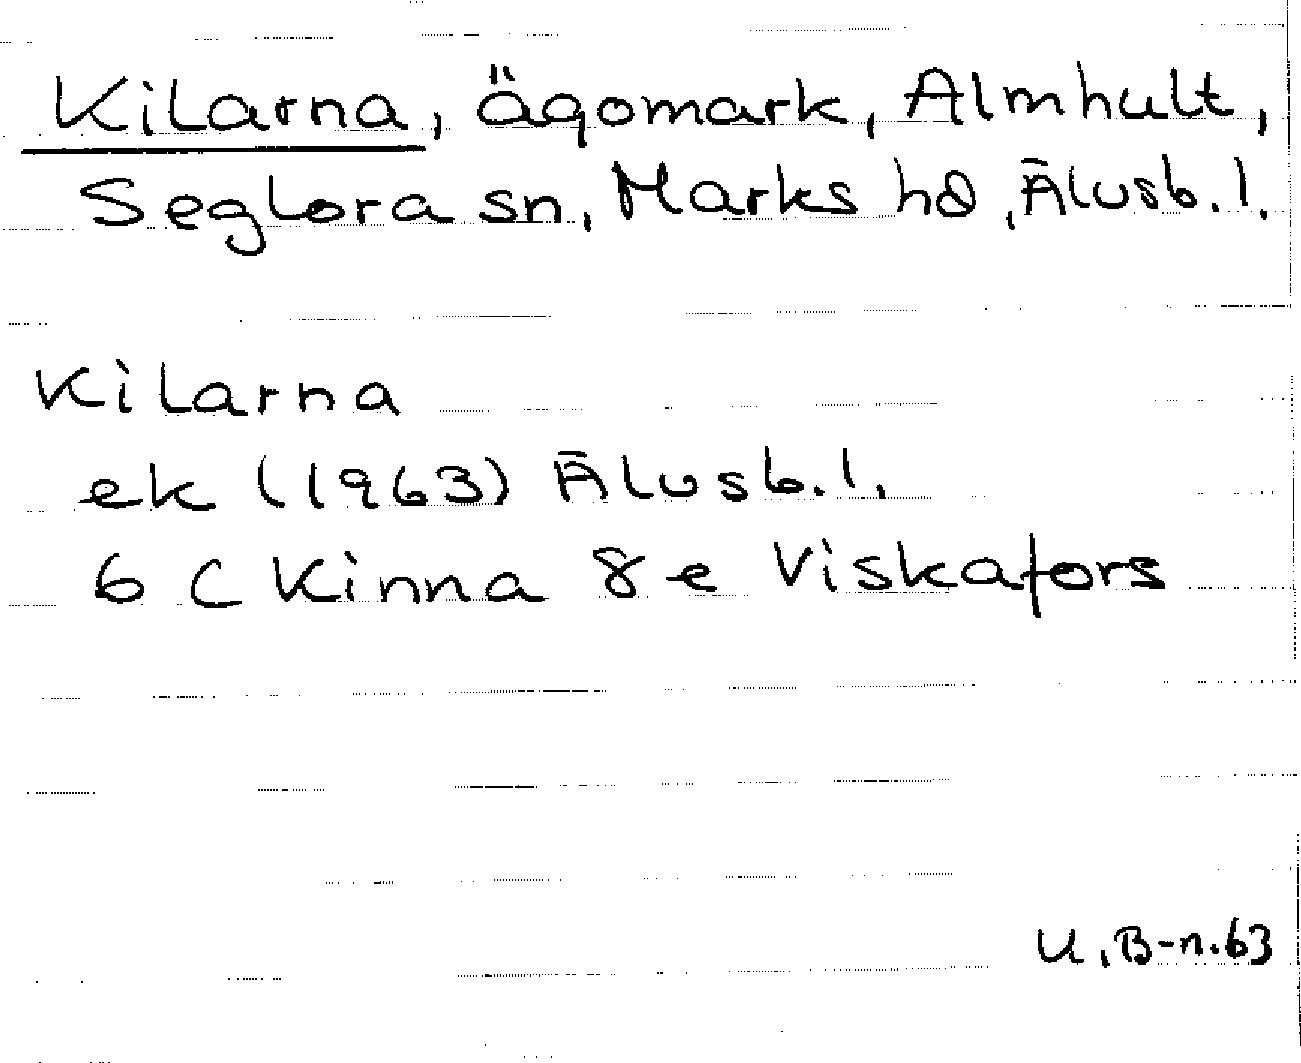 Kilarna, ägomark, Almhult,
Seglora sn, Marks hd, Älvsb. l.
Kilarna
ek (1963) Älvsb. l.
6 C Kinna 8 e Viskafors
U. B-n. 63